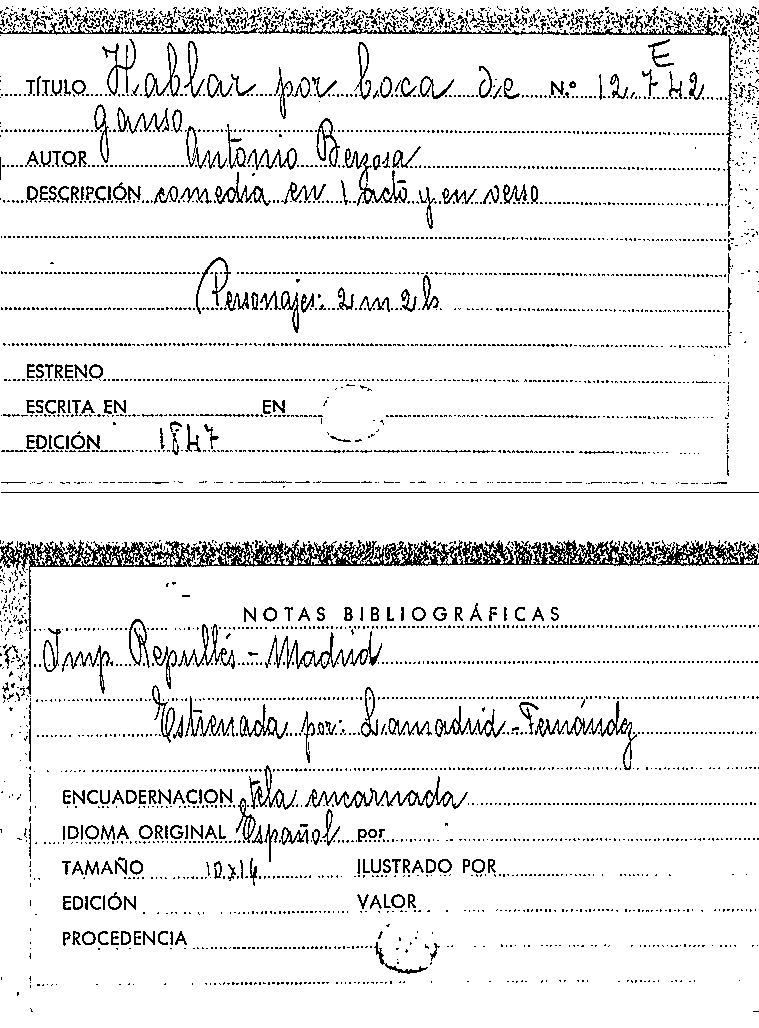 E
TÍTULO Hablar por boca de N.º 12.742
ganso
AUTOR Antonio Berzosa
DESCRIPCIÓN comedia en 1 acto y en verso
Personajes: 2 m 2 h
ESTRENO
ESCRITA EN EN
EDICIÓN 1847
NOTAS BIBLIOGRÁFICAS
Imp Repullés - Madrid
Estrenada por: Lamadrid - Fernández
ENCUADERNACION tela encarnada
IDIOMA ORIGINAL Español por
TAMAÑO 10x14 ILUSTRADO POR
EDICIÓN VALOR
PROCEDENCIA